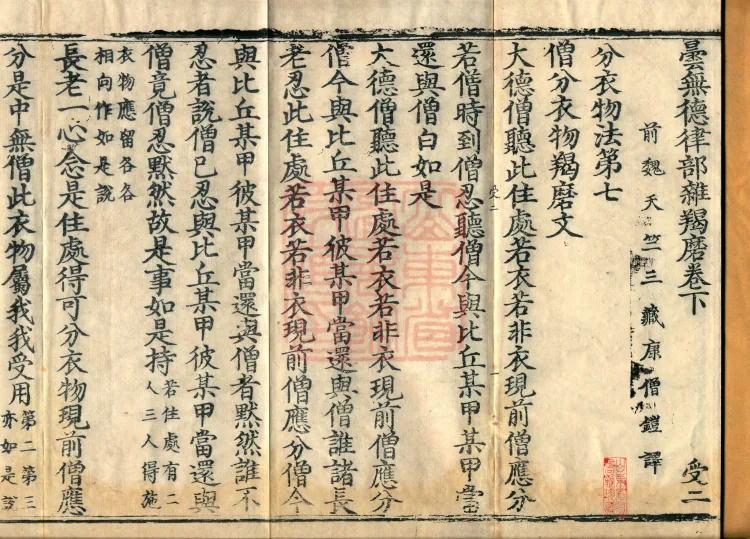 曇無德律部雜羯磨卷下 受二
前魏天竺三藏康僧鎧譯
分衣物法第七
僧分衣物羯磨文
大德僧聽此住處若衣若非衣現前僧應分
受二
若僧時到僧忍聽僧今與比丘某甲某甲當
還與僧白如是
大德僧聽此住處若衣若非衣現前僧應分
僧今與比丘某甲彼某甲當還與僧誰諸長
老忍此住處若衣若非衣現前僧應分僧今
與比丘某甲彼某甲當還與僧者默然誰不
忍者說僧已忍與比丘某甲彼某甲當還與
僧竟僧忍默然故是事如是持
若住處有二
人三人得施
衣物應留各各
相向作如是說
長老一心念是住處得可分衣物現前僧應
分是中無僧此衣物屬我我受用
第二第三
亦如是說